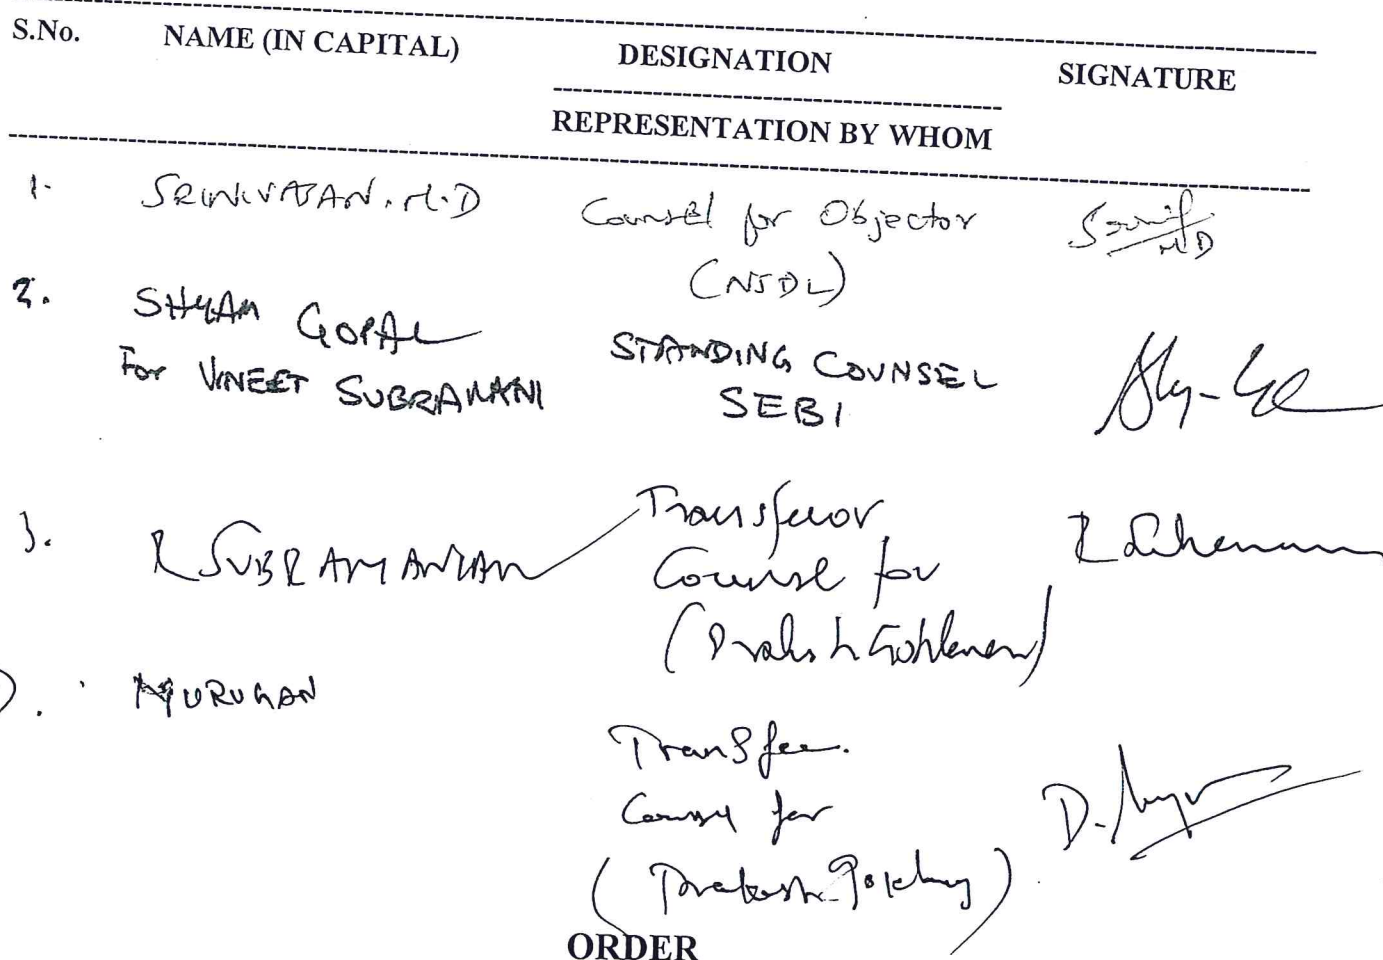 S.No. NAME (IN CAPITAL) DESIGNATION SIGNATURE
REPRESENTATION BY WHOM
1. SRINIVASAN. M.D Counsel for Objector
(NSDL)
M D
2. SHYAM GOPAL
For VINEET SUBRAMANI
STANDING COUNSEL
SEBI
3. R SUBRAMANIAN
Transferor
Counsel for
D. MURUGAN
Transfee.
Counsel for
(Prakash
D.
ORDER